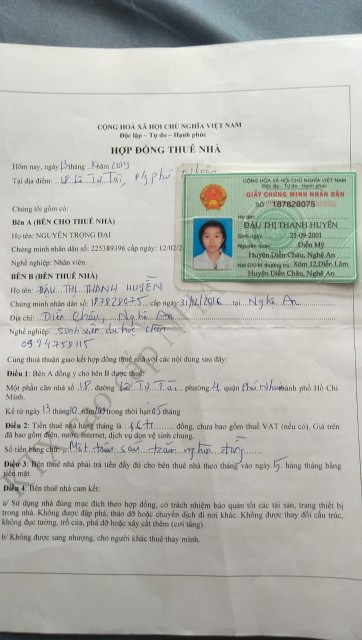 CỘNG HOÀ XÃ HỘI CHỦ NGHĨA VIỆT NAM
Độc lập – Tự do – Hạnh phúc
HỢP ĐỒNG THUÊ NHÀ
Hôm nay, ngày 13 tháng năm 2019
Tại địa điểm: 18 Lê Tự Tài, P4 phú
Chúng tôi gồm có:
Bên A (BÊN CHO THUÊ NHÀ)
Họ tên: NGUYỄN TRỌNG ĐẠI
Chứng minh nhân dân số: 225389396 cấp ngày: 12/02/2
Nghề nghiệp: Nhân viên.
BÊN B (BÊN THUÊ NHÀ)
CỘNG HÒA XÃ HỘI CHỦ NGHĨA VIỆT NAM
Độc lập - Tự do - Hạnh phúc
GIẤY CHỨNG MINH NHÂN DÂN
SỐ 187828075
Họ tên
ĐẬU THỊ THANH HUYỀN
Sinh ngày 21-09-2001
Nguyên quán Diễn Mỹ
Huyện Diễn Châu, Nghệ An
Nơi ĐKHK thường trú Xóm 12, Diễn Lâm
Huyện Diễn Châu, Nghệ An
Họ tên ĐẬU THỊ THANH HUYỀN
Chứng minh nhân dân số: 187828075 cấp ngày: 2016 tại Nghệ An
Địa chỉ: Diễn Châu, Nghệ An
Nghề nghiệp: sinh viên du học
0924755115
Cùng thoả thuận giao kết hợp đồng thuê nhà với các nội dung sau đây:
Điều 1: Bên A đồng ý cho bên B được thuê:
Một phần căn nhà số 18 đường Lê Tự Tài, phường 4, quận Phú Nhuận thành phố Hồ Chí
Minh.
Kể từ ngày 13 tháng 10 năm 2019 trong thời hạn 05 tháng
Điều 2: Tiền thuê nhà hàng tháng là đồng, chưa bao gồm thuế VAT (nếu có). Giá trên
đã bao gồm điện, nước, internet, dịch vụ dọn vệ sinh chung.
Số tiền bằng chữ: Một triệu sáu trăm nghìn đồng
Điều 3: Bên thuê phải trả tiền đầy đủ cho bên thuê nhà theo tháng vào ngày 15 hàng tháng bằng
tiền mặt.
Điều 4: Bên thuê nhà cam kết:
a/ Sử dụng nhà đúng mục đích theo hợp đồng, có trách nhiệm bảo quản tốt các tài sản, trang thiết bị
trong nhà. Không được đập phá, tháo dỡ hoặc chuyển dịch đi nơi khác. Không được thay đổi cấu trúc,
không đục tường, trổ cửa, phá dỡ hoặc xây cất thêm (cơi tầng).
b/ Không được sang nhượng, cho người khác thuê thay mình.